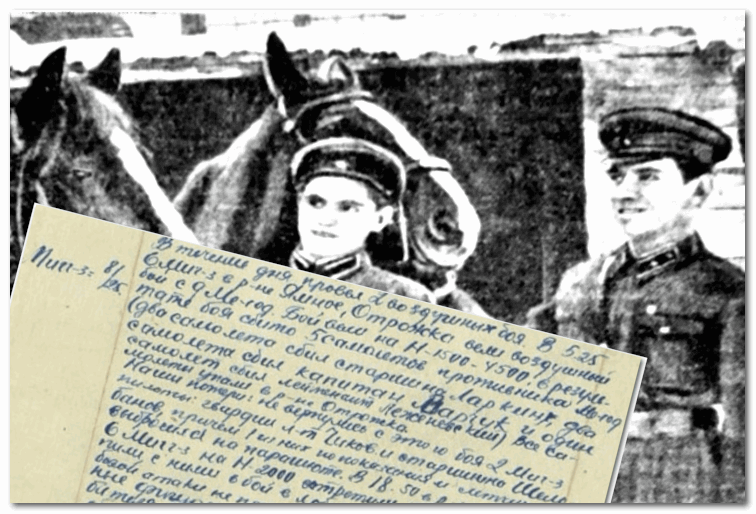 Миг-3 = 8/25
В течение дня провел 2 воздушных боя. В 5.25
6 миг-3 в р-не Ямное, Отрожка вели воздушный
бой с 9 Ме-109. Бой вели на Н-1500-4500. В резуль-
тате боя сбито 5 самолетов противника Ме-109
(два самолета сбил старшина Ларкин, два
самолета сбил капитан и один
самолет сбил лейтенант Леженевский) Все са-
молеты упали в р-не Отрожка.
Наши потери: не вернулись с этого боя 2 миг-3
пилоты: гвардии л-т Чиков и старшина
причем 1 из них по показаниям
выбросился на парашюте. В 18.50 в
6 миг-3 на Н-2000 встретили
с ними в бой в
атаки не
ные